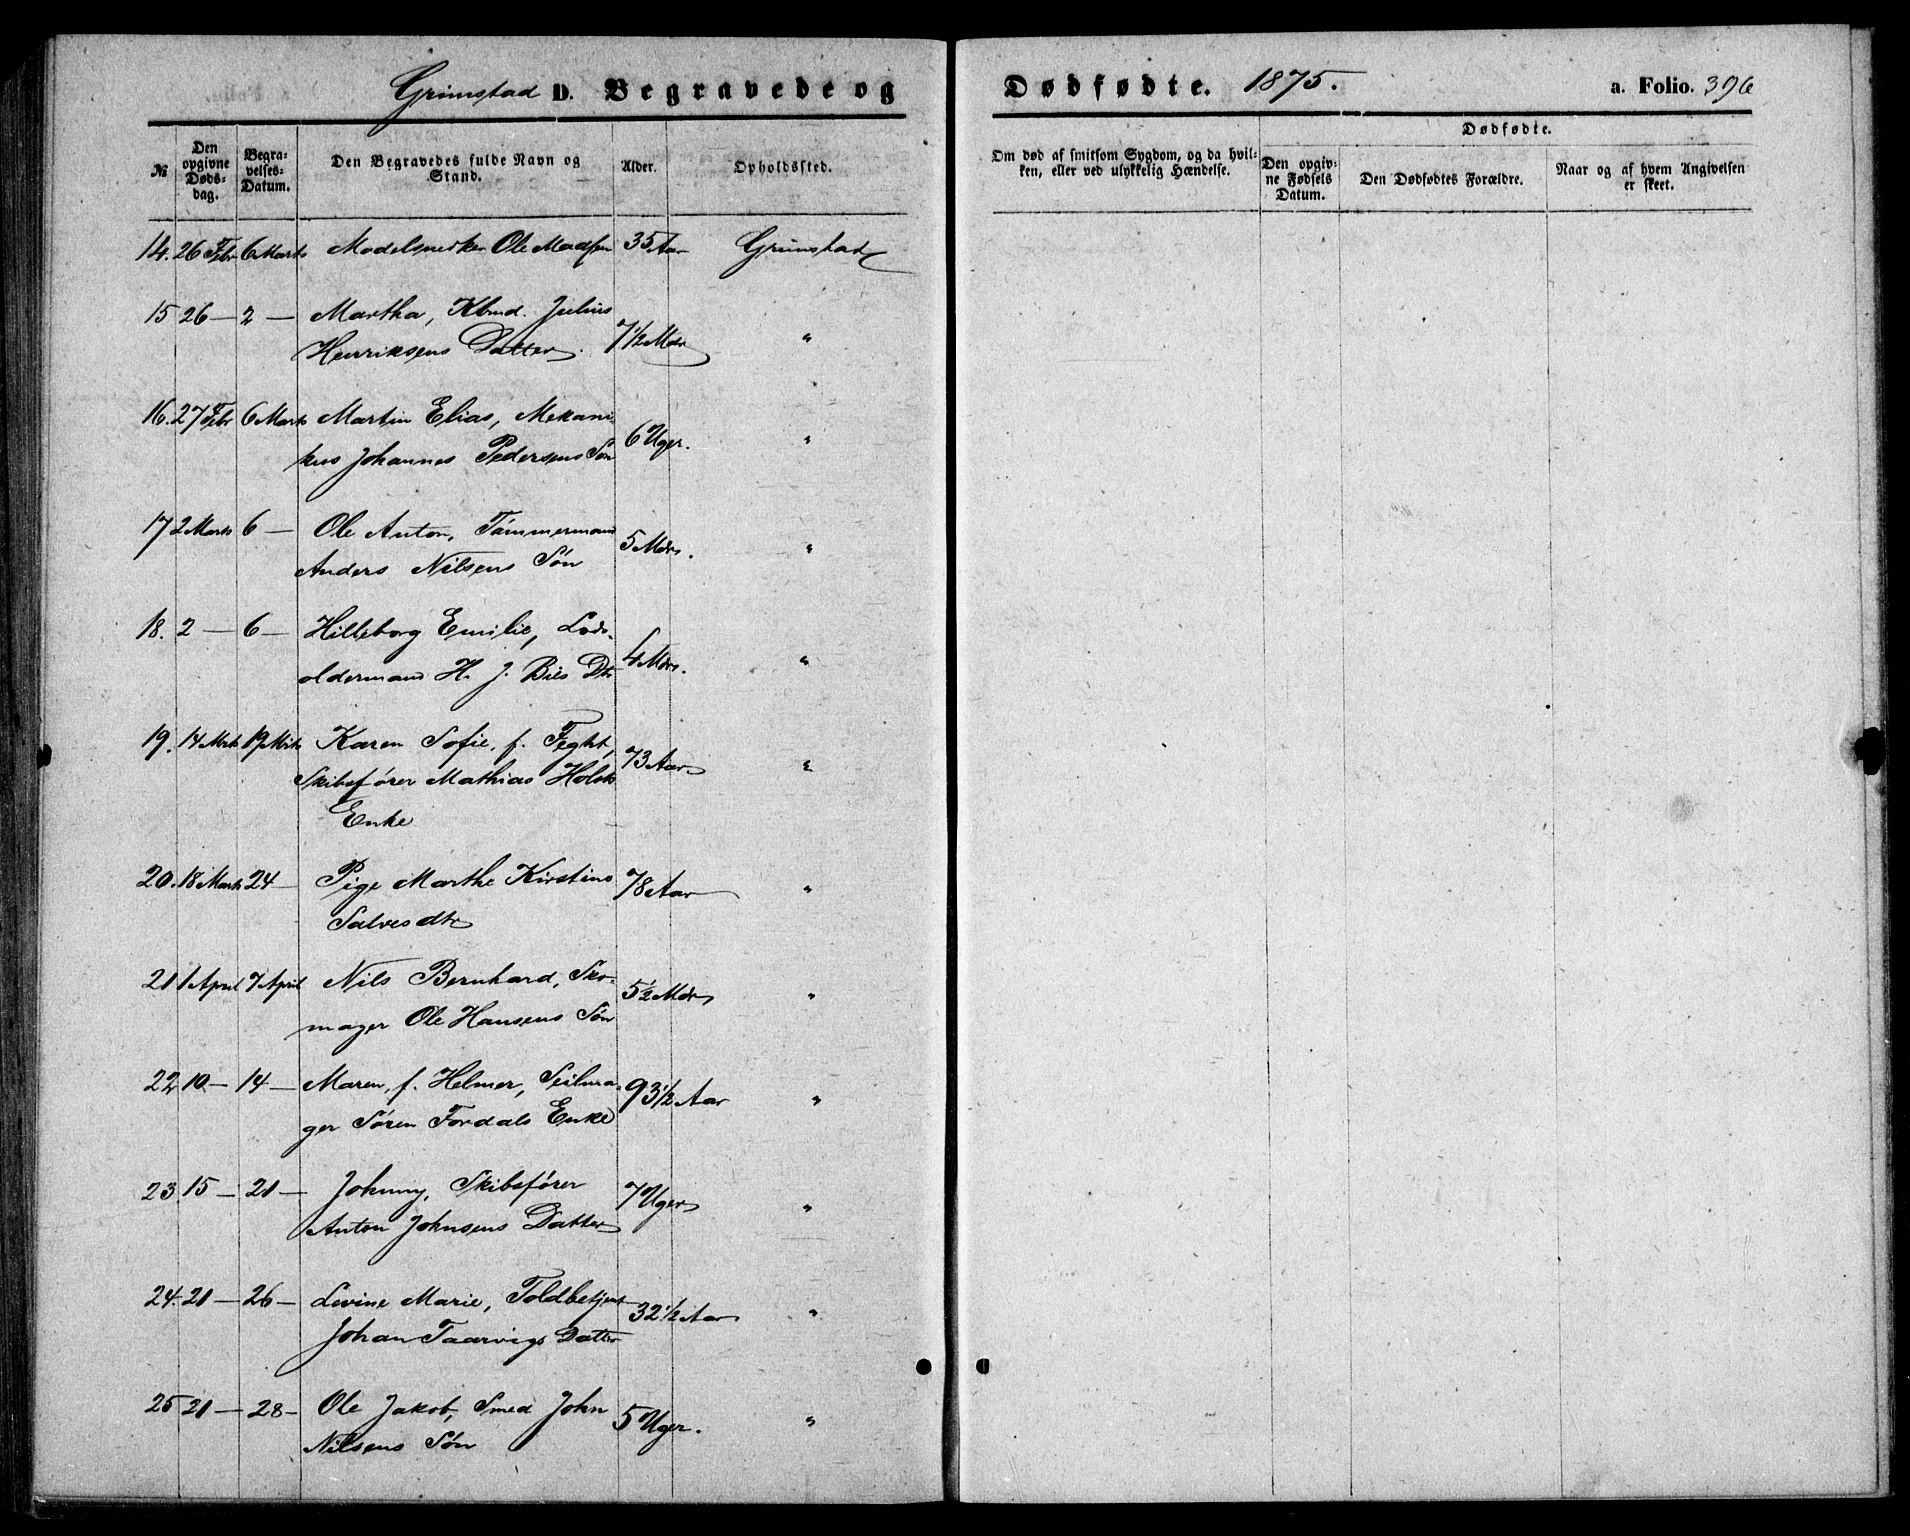 Grimstad D. Begravede og Dødfødte. 1875. a. Folio. 396
№ Den opgivne Dødsdag. Begravelses-Datum. Den Begravedes fulde Navn og Stand. Alder. Opholdssted. Om død af smitsom Sygdom, og da hvilken, eller ved ulykkelig Hændelse. Dødfødte. Den opgivne Fødsels Datum. Den Dødfødtes Forældre. Naar og af hvem Angivelsen er skeet.
14. 26 Febr 6 Marts Modelsnerker Ole Madsen 35 Aar Grimstad
15 26 — 2 — Martha, Kbmd. Julius
Henriksens Datter. 7 1/2 Mdr "
16. 27 Febr 6 Marts Martin Elias, Mekani-
kus Johannes Pedersens Søn 6 Uger. "
17 2 Marts 6 — Ole Anton, Tømmermand
Anders Nilsens Søn 5 Mdr. "
18. 2 — 6 — Hilleborg Emilie, Lods-
oldermand H. J. Bies Dtr 4 Mdr. "
19. 14 Mrts 19 Mrts Karen Sofie, f. Feght,
Skibsfører Mathias Holsts 73 Aar "
Enke
20. 18 Marts 24 — Pige Marthe Kirstine 78 Aar "
Salvesdtr
21 1 April 7 April Nils Bernhard, Sko-
mager Ole Hansens Søn 5 1/2 Mdr "
22 10 — 14 — Maren, f. Helmer, Seilma-
ger Søren Fordals Enke 93 1/2 Aar "
23 15 — 21 — Johnny, Skibsfører
Anton Johnsens Datter 7 Uger "
24. 21 — 26 — Levine Marie, Toldbetjent
Johan Taarvigs Datter 32 1/2 Aar "
25 21 — 28 — Ole Jakob, Smed John
Nilsens Søn 5 Uger. "